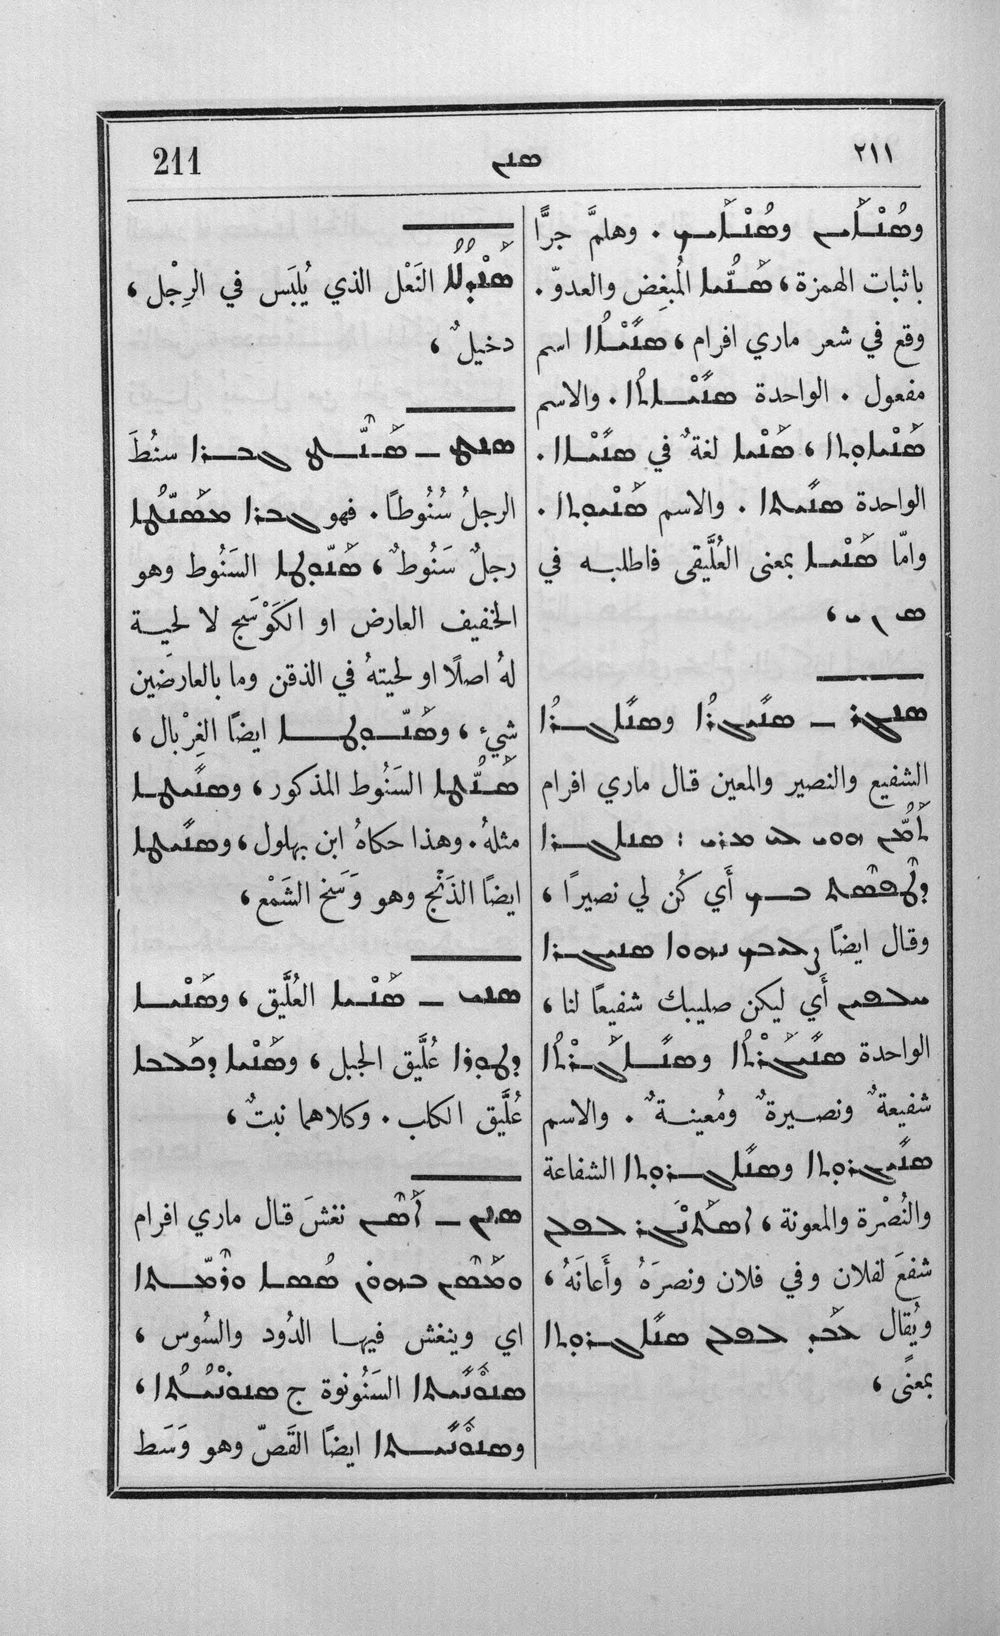 211
ܣܢܡ
٢١١
وܣܢܐܬܝ وܣܢܐܬܟ . وهلمَّ جرًّا
باثبات الهمزة، ܣܢܝܐ المُبغِض والعدوّ.
وقع في شعر ماري افرام، ܣܢܝܐܐ اسم
مفعول . الواحدة ܣܢܝܐܬܐ . والاسم
ܣܢܝܐܘܬܐ ، ܣܢܝܐ لغةٌ في ܣܢܝܐܐ .
الواحدة ܣܢܝܬܐ . والاسم ܣܢܝܘܬܐ .
وامّا ܣܢܝܐ بمعنى العُلَّيقى فاطلبه في
ܣ ܢ ܝ ،
ܣܢܓܪ ــ ܣܢܝܓܪܐ وܣܢܐܓܪܐ
الشفيع والنصير والمعين قال ماري افرام
ܗܘܝ ܠܝ ܡܪܝ : ܣܢܐܓܪܐ
أَي كُن لي نصيرًا ،
وقال ايضًا ܙܠܝܒܟ ܢܗܘܐ ܣܢܝܓܪܐ
ܚܠܦܝܢ أَي ليكن صليبك شفيعًا لنا ،
الواحدة ܣܢܝܓܪܬܐ وܣܢܐܓܪܬܐ
شفيعةٌ ونصيرةٌ ومُعينةٌ . والاسم
ܣܢܝܓܪܘܬܐ وܣܢܐܓܪܘܬܐ الشفاعة
والنُصْرة والمعونة ، ܐܣܬܢܓܪ ܚܠܦ
شفعَ لفلان وفي فلان ونصرَهُ وأَعانَهُ ،
ويُقال ܥܒܕ ܚܠܦ ܣܢܐܓܪܘܬܐ
بمعنًى ،
ܣܢܕܠܐ النَعْل الذي يُلبَس في الرِجْل ،
دخيلٌ ،
ܣܢܛ ــ ܣܢܛ ܓܒܪܐ سنُطَ
الرجلُ سُنُوطًا . فهو ܓܒܪܐ ܡܣܢܛܐ
رجلٌ سَنُوطٌ ، ܣܢܘܛܐ السَنُوط وهو
الخفيف العارض او الكَوْسَج لا لحية
لهُ اصلًا او لحيتهُ في الذقن وما بالعارضين
شيء ، وܣܢܘܛܐ ايضًا الغِرْبال ،
ܣܢܛܐ السَنُوط المذكور ، وܣܢܝܛܐ
مثلهُ . وهذا حكاهُ ابن بهلول ، وܣܢܝܛܐ
ايضًا الذَنْج وهو وَسَخ الشَمْع ،
ܣܢܝ ــ ܣܢܝܐ العُلَّيق ، وܣܢܝܐ
ܕܛܘܪܐ عُلَّيق الجبل ، وܣܢܝܐ ܕܟܠܒܐ
عُلَّيق الكلب . وكلاهما نبتٌ ،
ܣܢܡ ــ نغشَ قال ماري افرام
ܒܗܘܢ ܣܣܐ ܘܪܡܬܐ
اي وينغش فيها الدُود والسُوس ،
ܣܢܘܢܝܬܐ السَنُونوة ج ܣܢܘܢܝܬܐ ،
وܣܢܘܢܝܬܐ ايضًا القَصّ وهو وَسَط